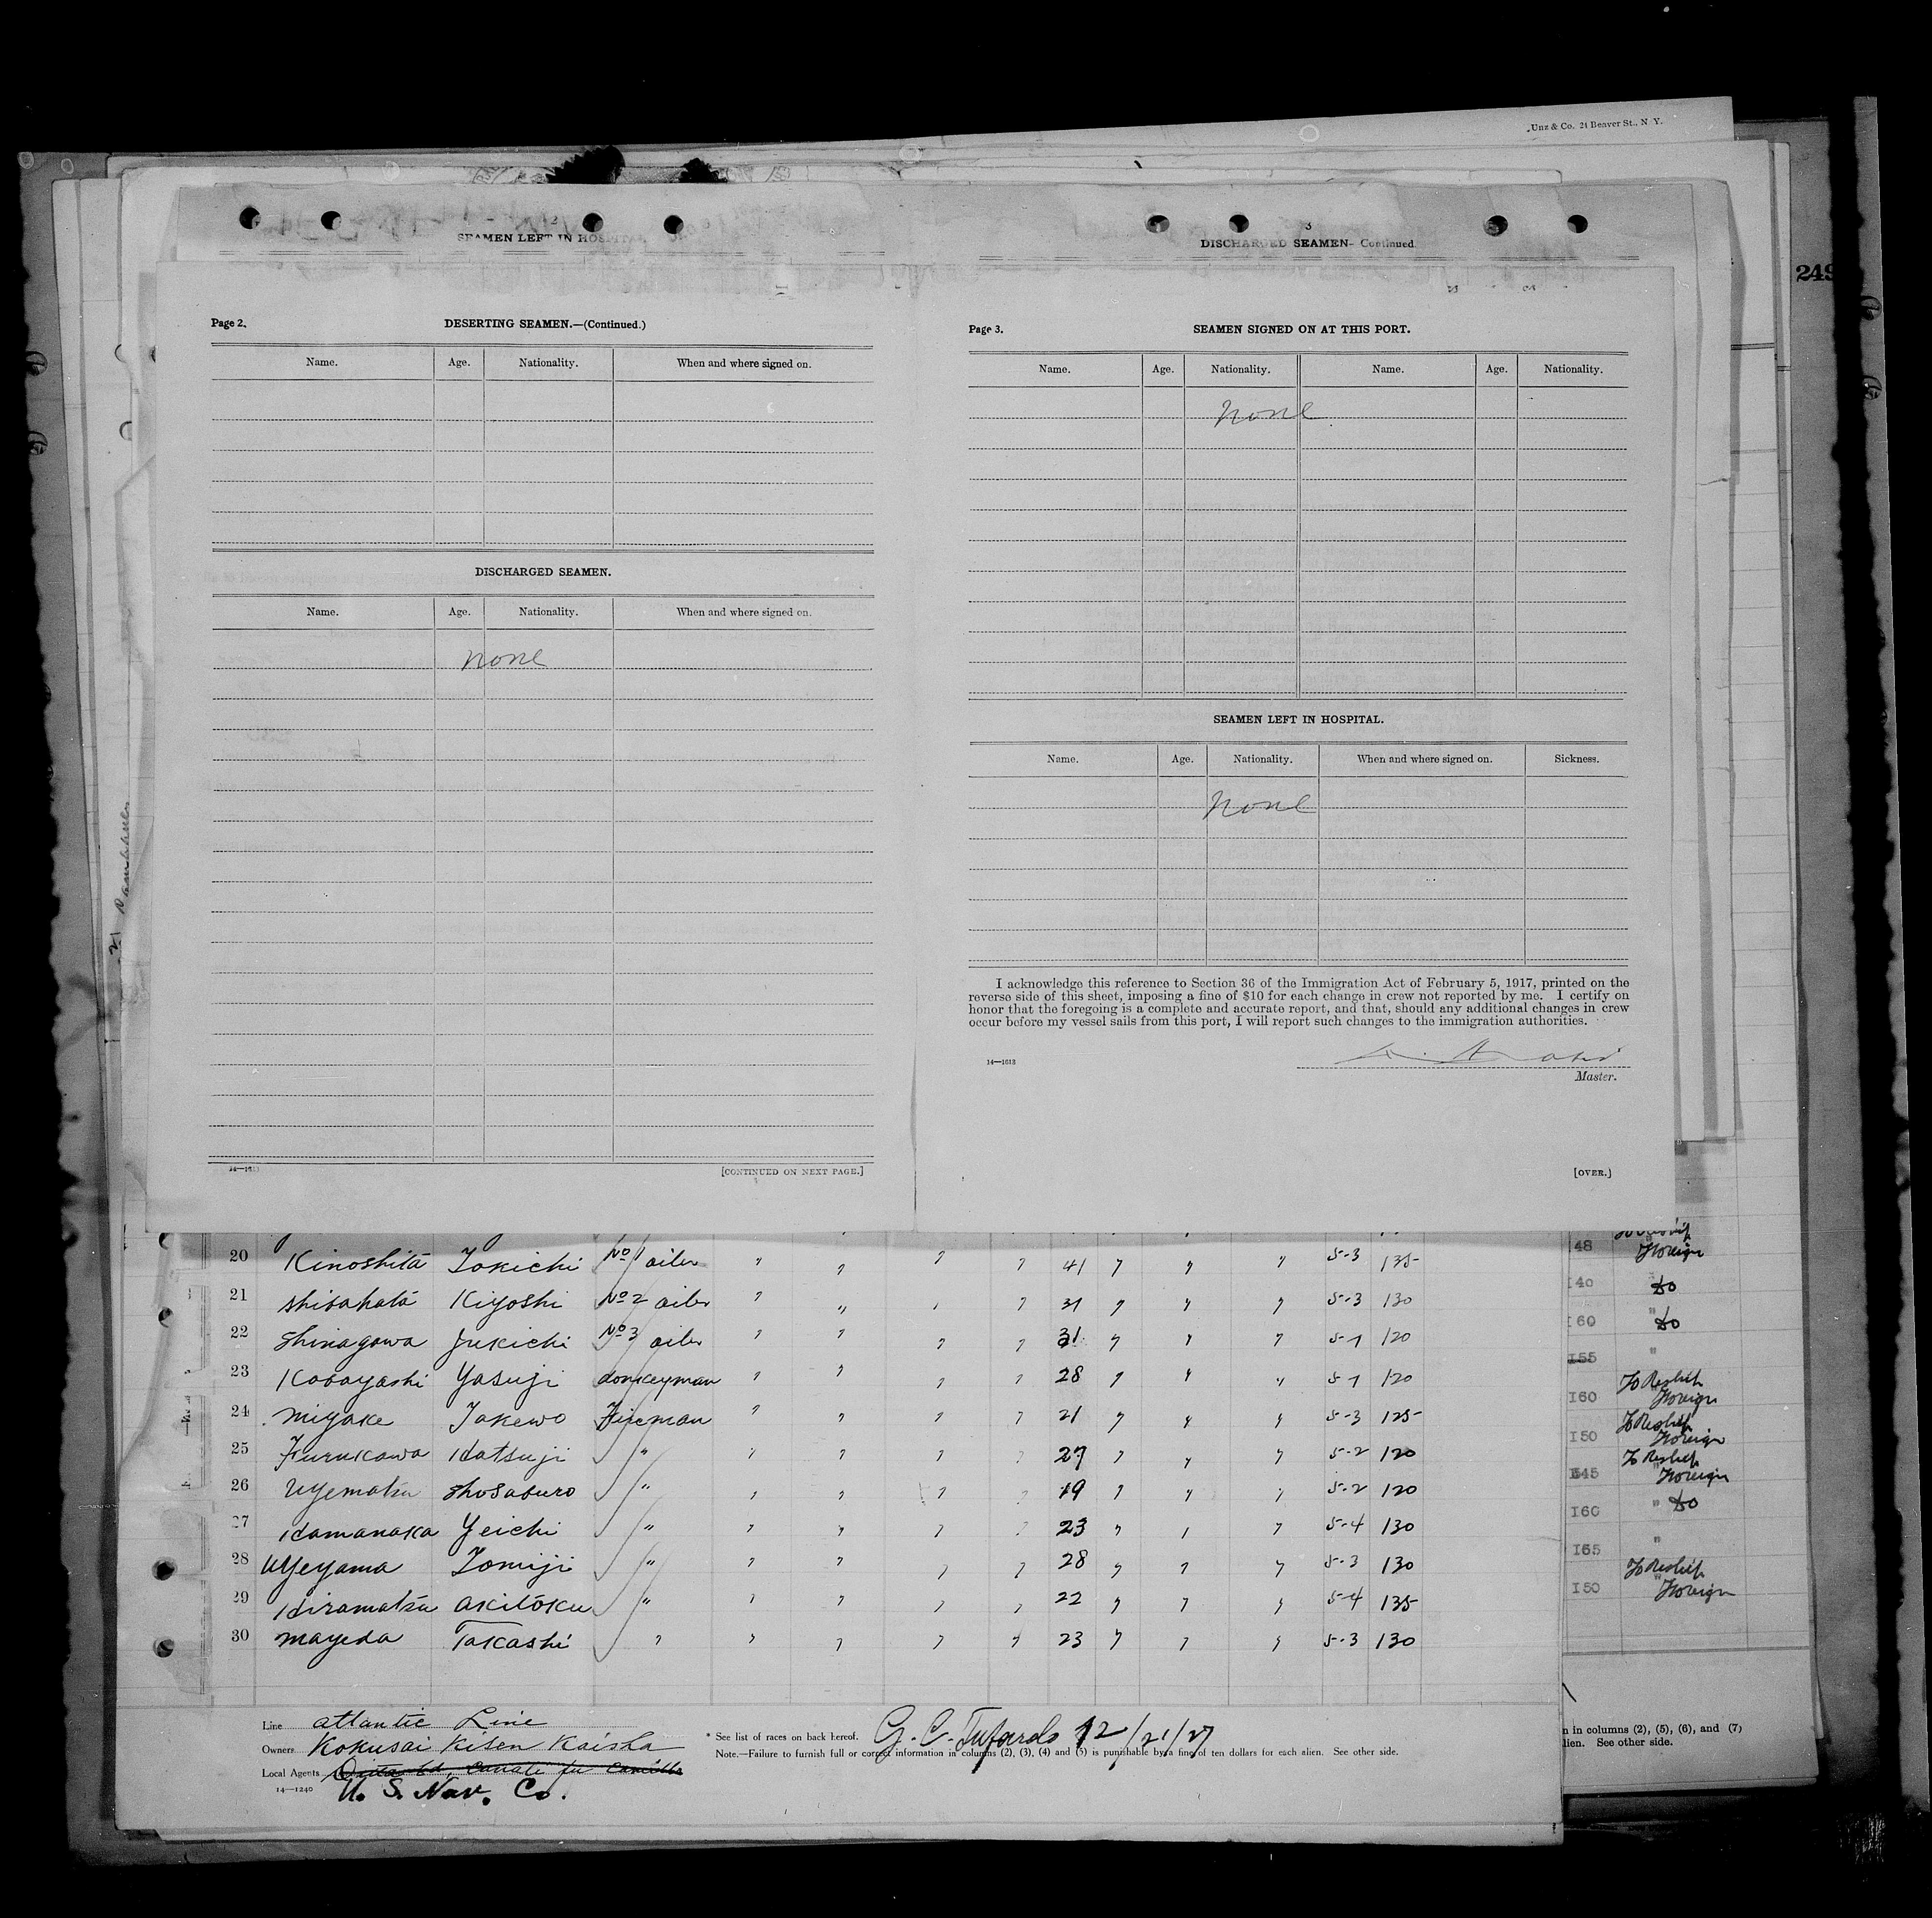 Unz & Co. 24 Beaver St., N. Y.
2
SEAMEN LEFT IN HOSPITAL
3
DISCHARGED SEAMEN—Continued.
249
Page 2.
DESERTING SEAMEN.—(Continued.)
Name. Age. Nationality. When and where signed on.
DISCHARGED SEAMEN.
Name. Age. Nationality. When and where signed on.
none
14—1613
[CONTINUED ON NEXT PAGE.]
Page 3.
SEAMEN SIGNED ON AT THIS PORT.
Name. Age. Nationality. Name. Age. Nationality.
none
SEAMEN LEFT IN HOSPITAL.
Name. Age. Nationality. When and where signed on. Sickness.
none
I acknowledge this reference to Section 36 of the Immigration Act of February 5, 1917, printed on the
reverse side of this sheet, imposing a fine of $10 for each change in crew not reported by me. I certify on
honor that the foregoing is a complete and accurate report, and that, should any additional changes in crew
occur before my vessel sails from this port, I will report such changes to the immigration authorities.
14—1613
Master.
[OVER.]
20 Kinoshita Tokichi No 1 oiler " " " " 41 " " " 5-3 135
21 Shibahata Kiyoshi No 2 oiler " " " " 31 " " " 5-3 130
22 Shinagawa Jukichi No 3 oiler " " " " 31 " " " 5-1 120
23 Kobayashi Yasuji donkeyman " " " " 28 " " " 5-1 120
24 Miyake Takewo Fireman " " " " 21 " " " 5-3 125
25 Furukawa Katsuji " " " " " 27 " " " 5-2 120
26 Uyematsu Shosaburo " " " " " 19 " " " 5-2 120
27 Hamanaka Yeichi " " " " " 23 " " " 5-4 130
28 Uyeyama Tomiji " " " " " 28 " " " 5-3 130
29 Hiramatsu Akitoku " " " " " 22 " " " 5-4 135
30 Mayeda Takashi " " " " " 23 " " " 5-3 130
48 Foreign
140 Do
160 " Do
155 "
160 To Reship Foreign
150 To Reship Foreign
145 To Reship Foreign
160 " Do
165 "
150 To Reship Foreign
Line Atlantic Line
Owners Kokusai Kisen Kaisha
Local Agents
U. S. Nav. Co.
14—1240
* See list of races on back hereof.
12/21/27
Note.—Failure to furnish full or correct information in columns (2), (3), (4) and (5) is punishable by a fine of ten dollars for each alien. See other side.
n in columns (2), (5), (6), and (7)
lien. See other side.